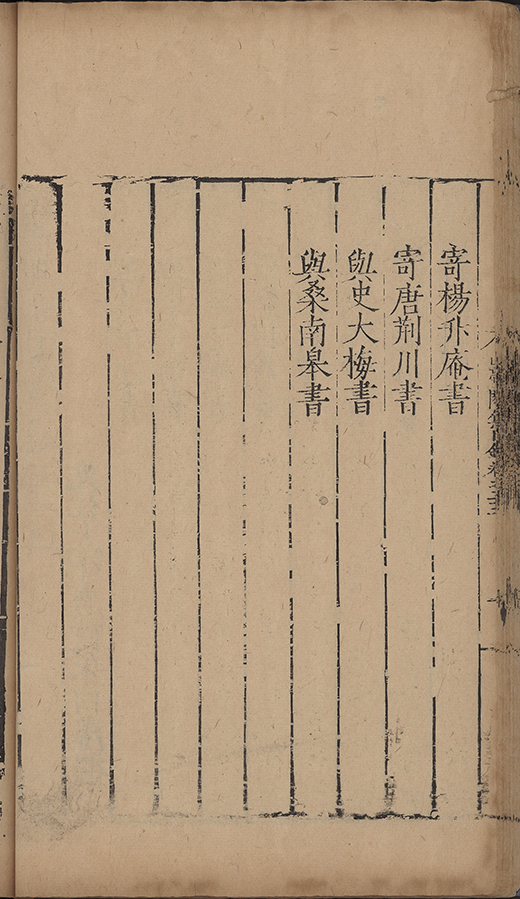 寄楊升庵書
寄唐荆川書
與史大梅書
與桑南皋書